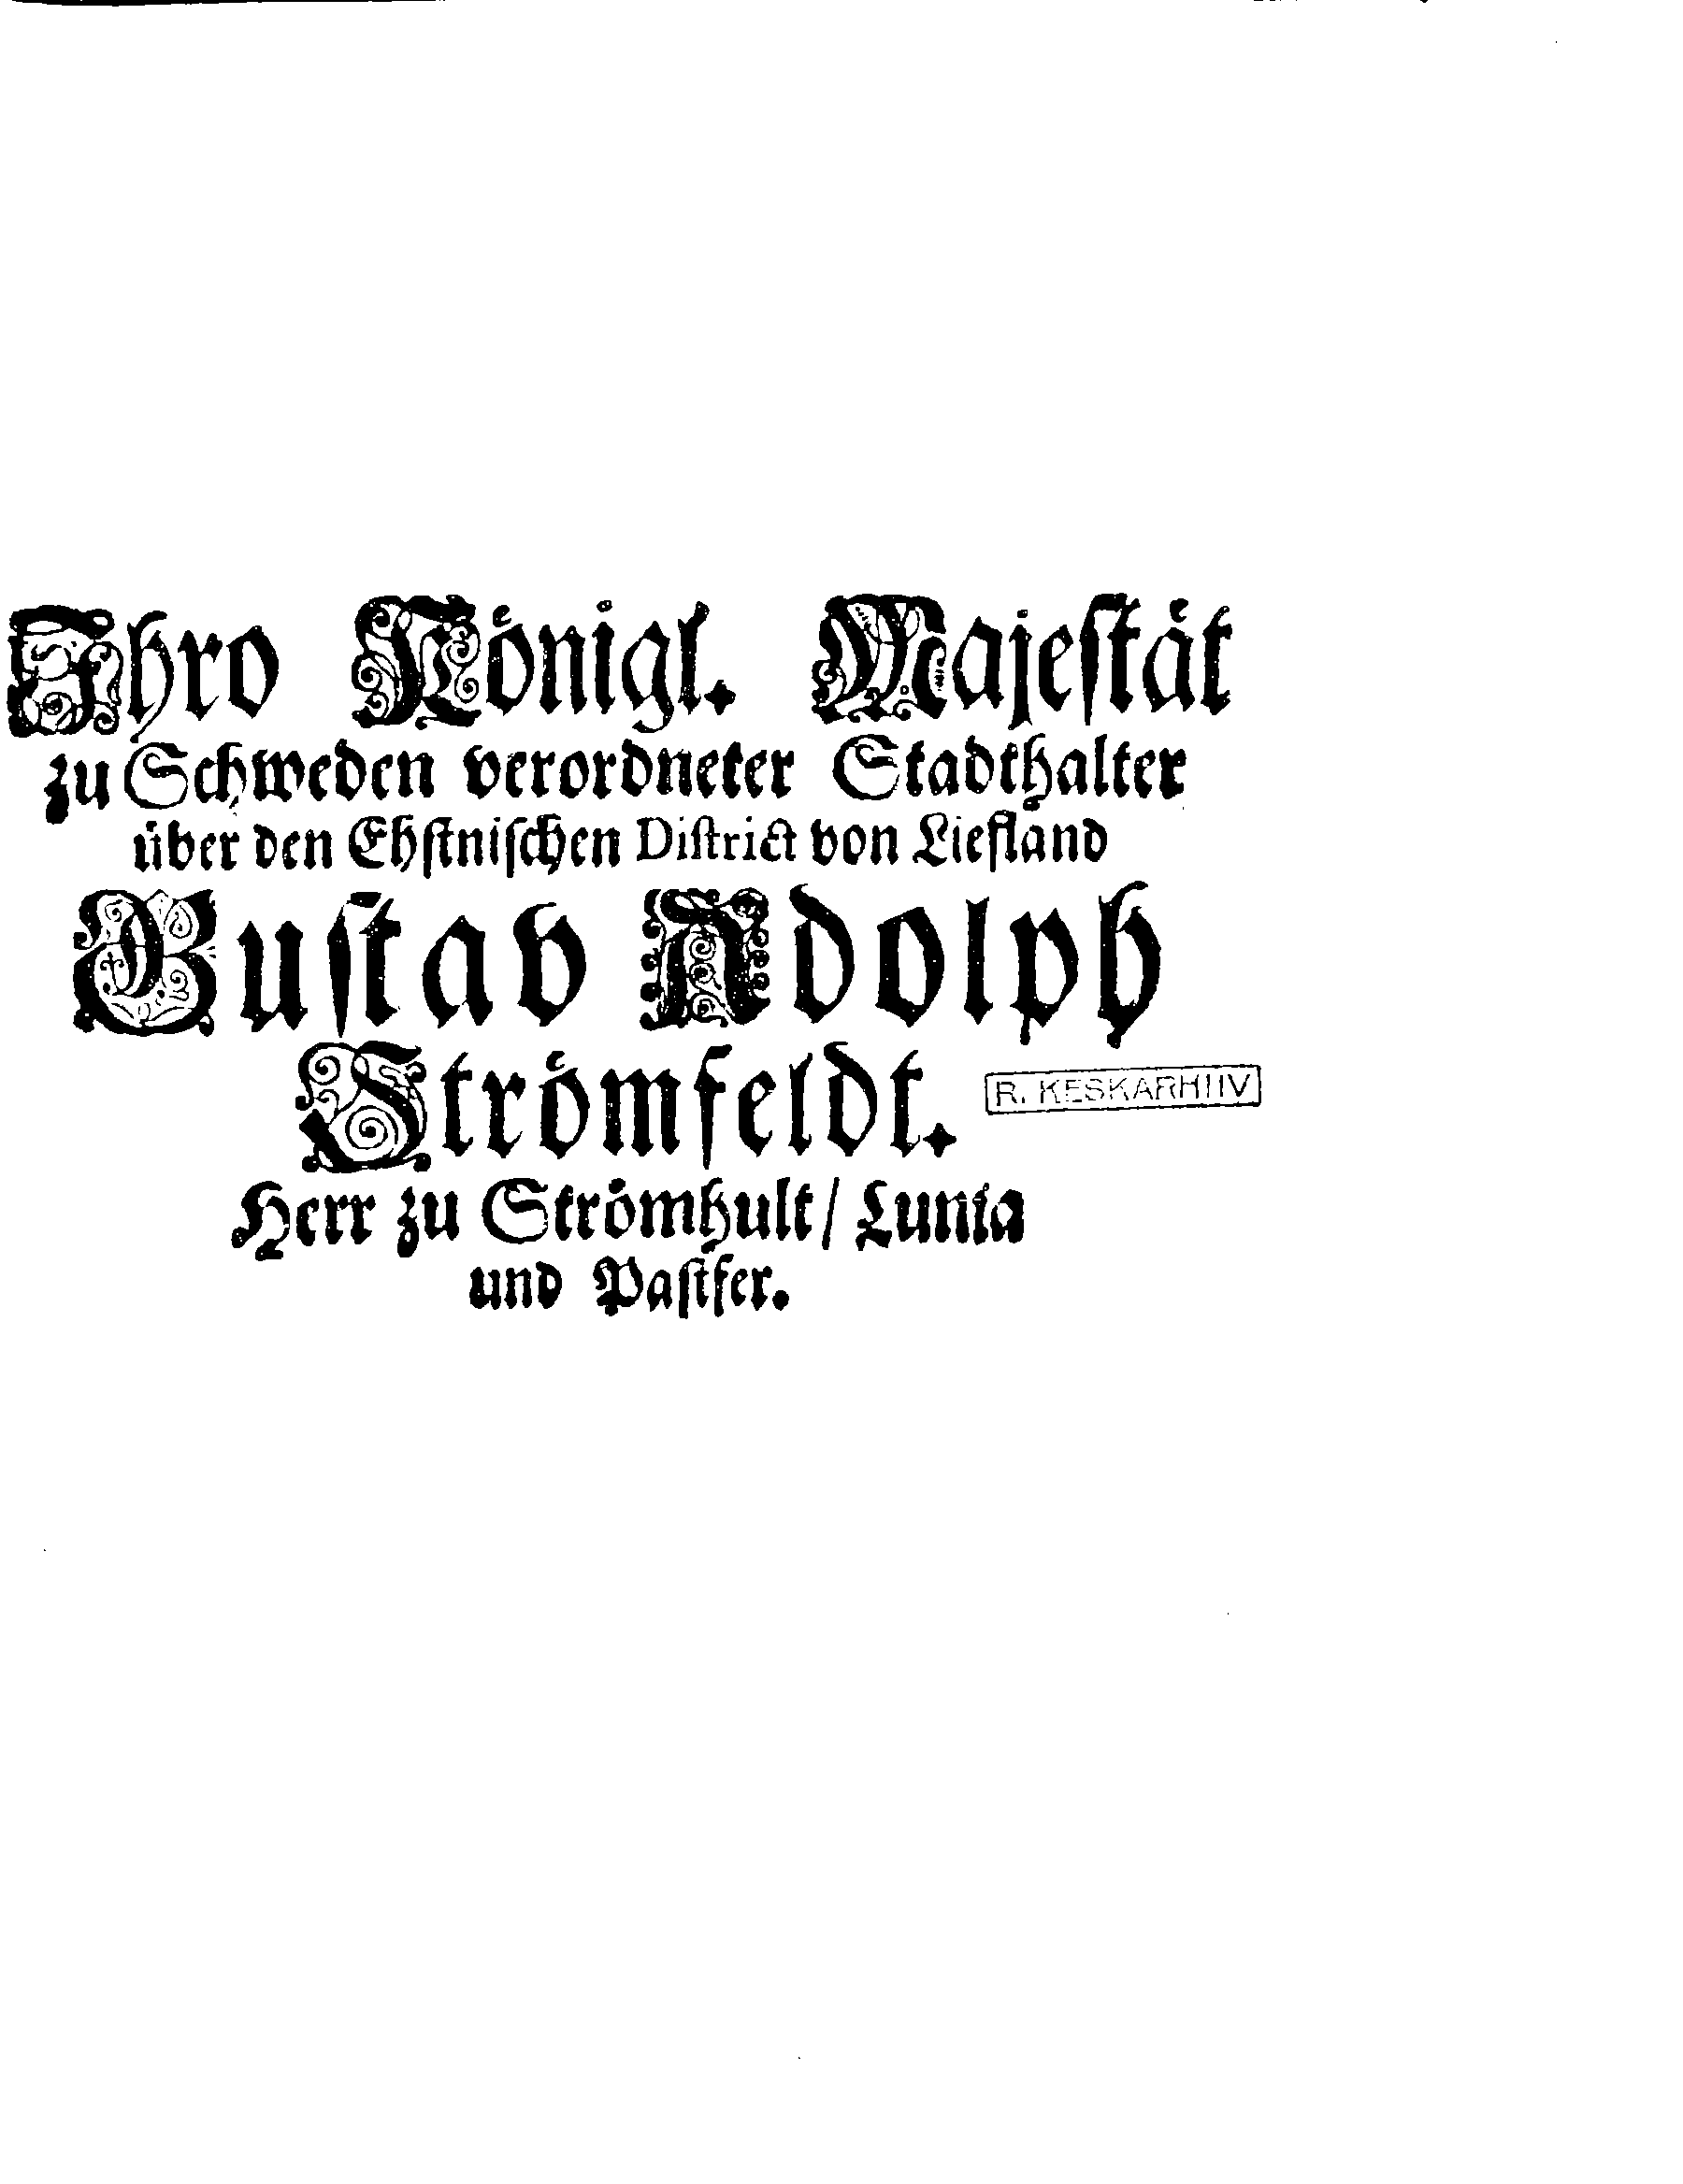 Ihro Königl. Majestät
zu Schweden verordneter Stadthalter
über den Ehstnischen District von Liefland
Gustav Adolph
Strömfeldt.
R. KESKARHIIV
Herr zu Strömhult/ Lunia
und Pastfer.